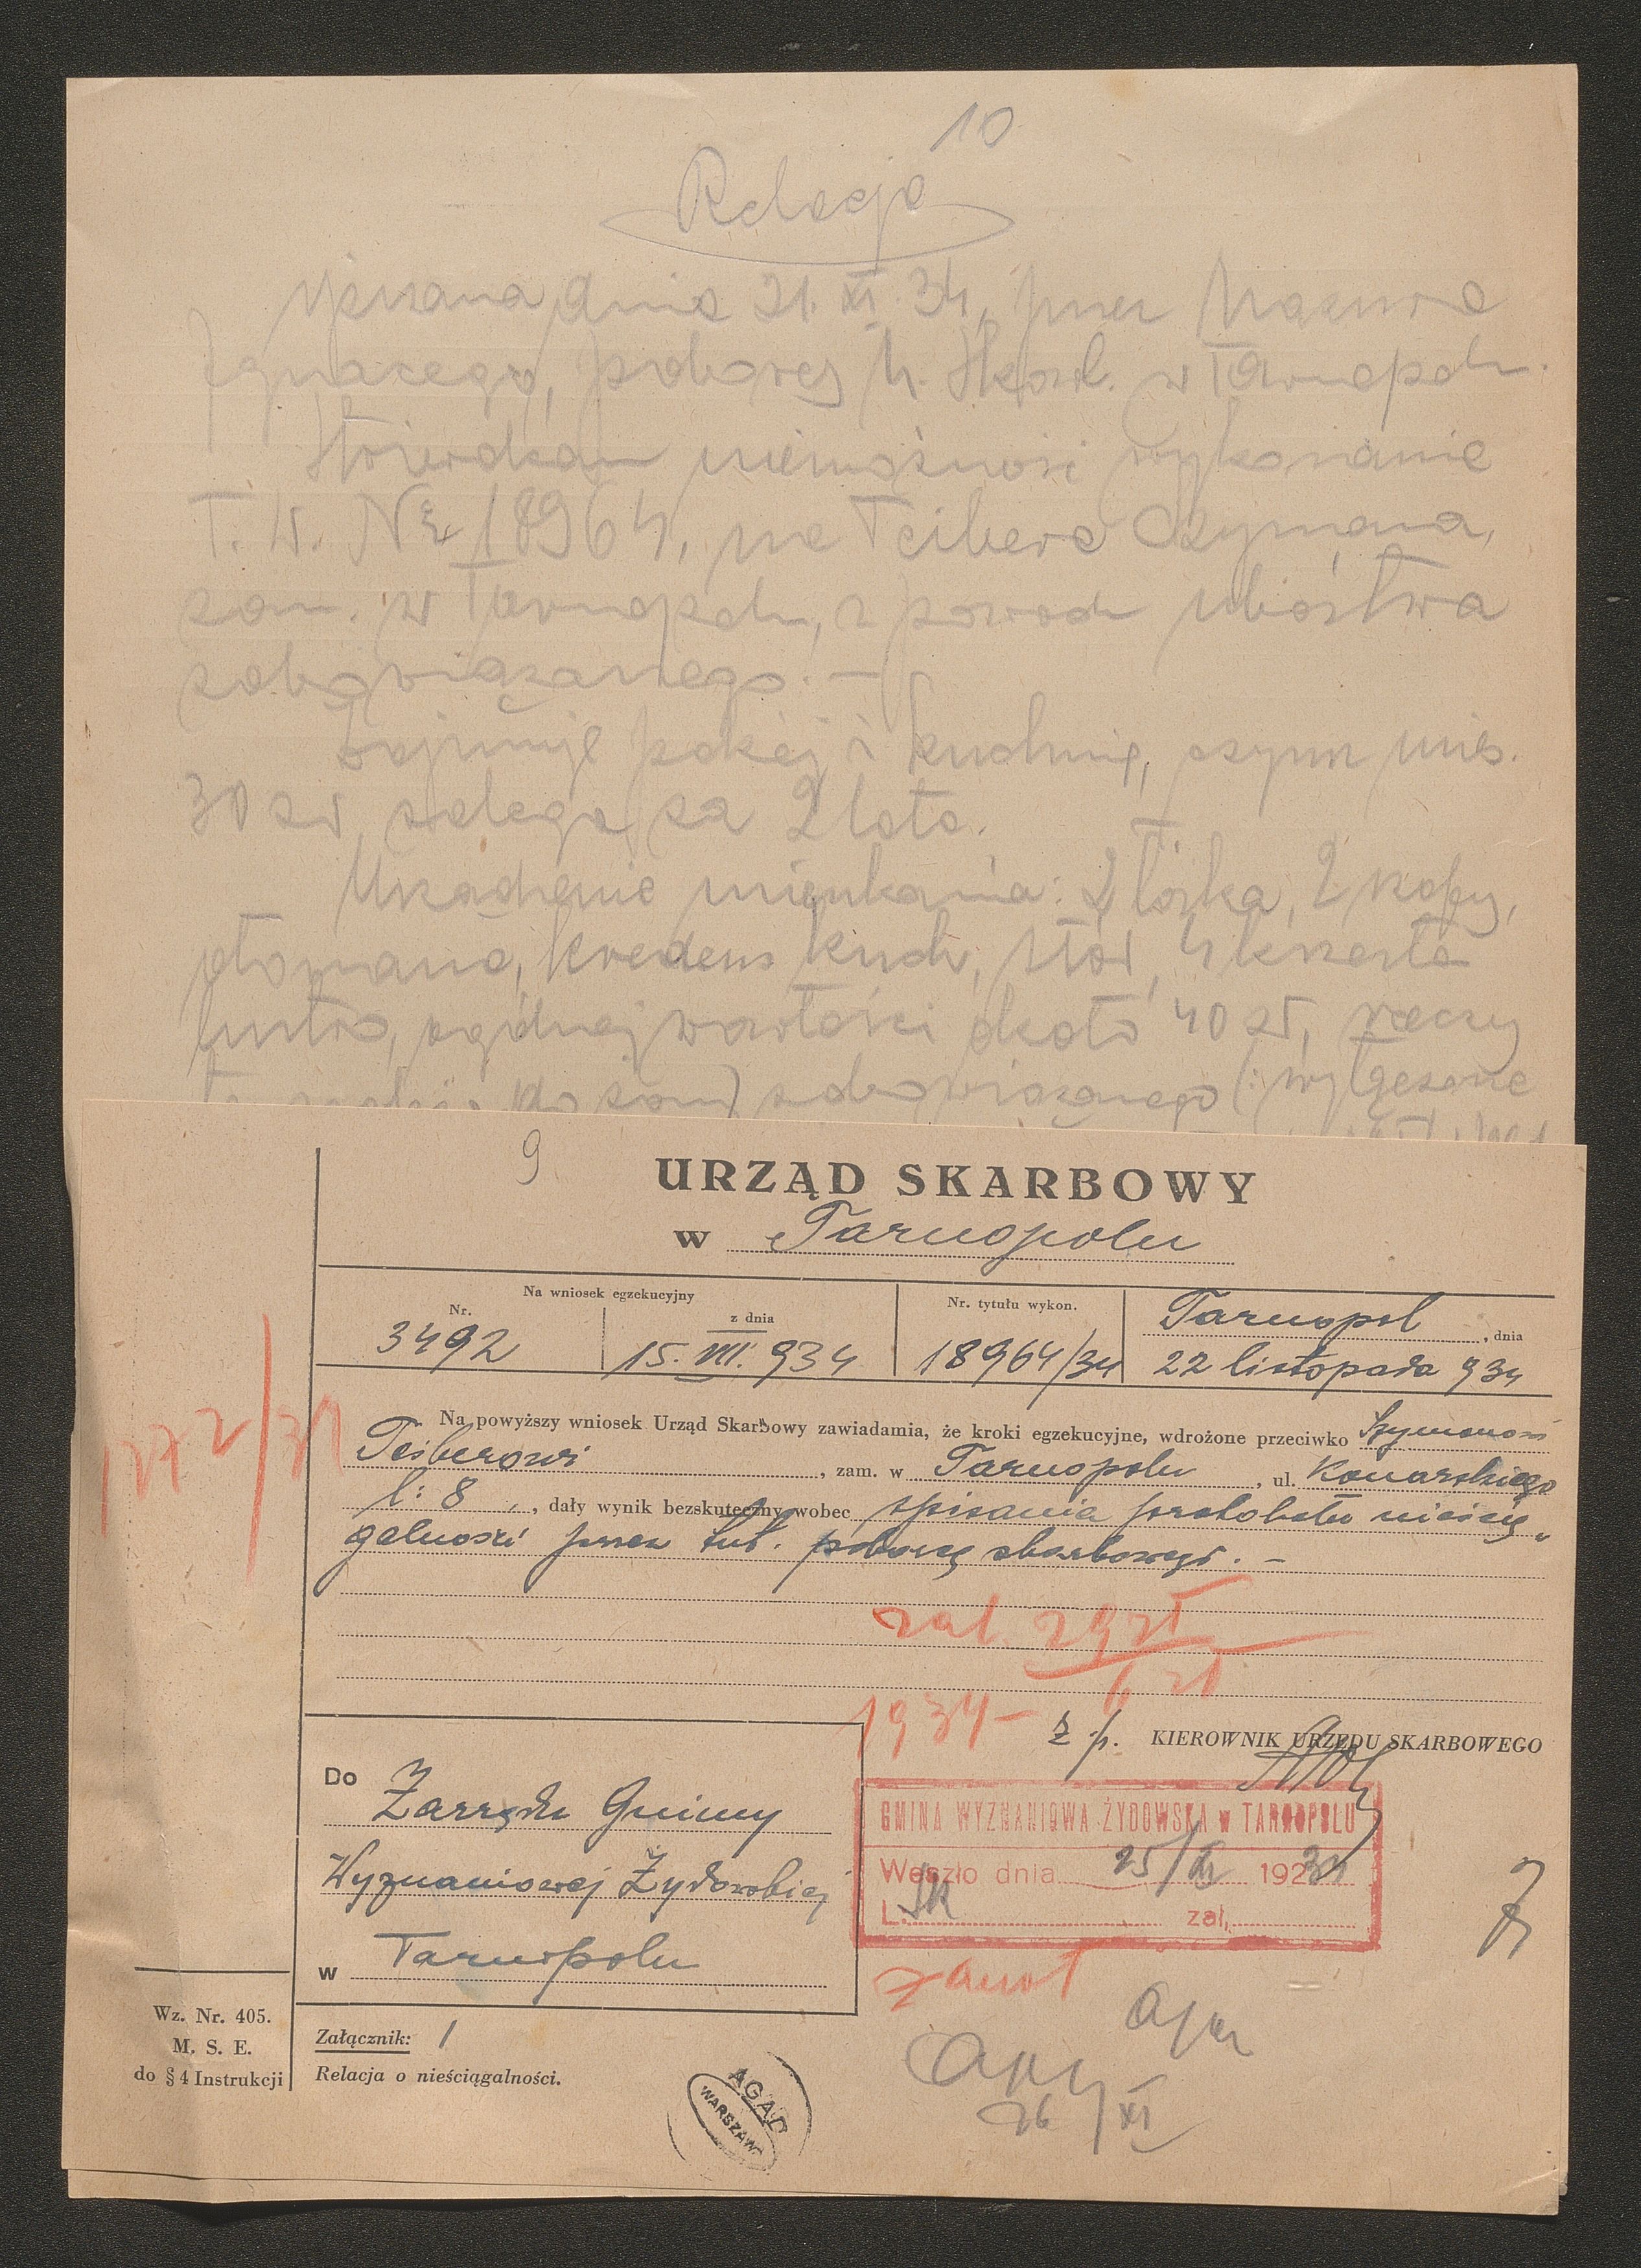 10
Relacja
spisana dnia 21. XI. 34, przez
Ignacego, poborcę U. Skarb. w Tarnopolu.
Stwierdzam niemożność wykonania
T. W. Nr 18964, na Teibera Szymona,
zam. w Tarnopolu, z powodu ubóstwa
zobowiązanego. —
Zajmuje pokój i kuchnię, czynsz mies.
30 zł, zalega za 2 lata.
Urządzenie mieszkania: 2 łóżka, 2 szafy,
otomana, kredens kuch, stół, 4 krzesła
lustro, ogólnej wartości około 40 zł, rzeczy
te zobowiązanego (: wyłączone
9
URZĄD SKARBOWY
w Tarnopolu
Na wniosek egzekucyjny
Nr. 3492
z dnia 15. VII. 934
Nr. tytułu wykon.
18964/34
Tarnopol, dnia
22 listopada 934
1272/34
Na powyższy wniosek Urząd Skarbowy zawiadamia, że kroki egzekucyjne, wdrożone przeciwko Szymonowi
Teiberowi, zam. w Tarnopolu, ul. Konarskiego
l: 8, dały wynik bezskuteczny wobec spisania protokołu nieścią„
galności przez tut. poborcę skarbowego. —
zal. 29 zł
6 zł
1934 —
z p. KIEROWNIK URZĘDU SKARBOWEGO
Do Zarządu Gminy
Wyznaniowej Żydowskiej
w Tarnopolu
GMINA WYZNANIOWA ŻYDOWSKA w TARNOPOLU
Weszło dnia 25/XI 1934
L. zał.
zanot
26/XI
Wz. Nr. 405.
M. S. E.
do § 4 Instrukcji
Załącznik: 1
Relacja o nieściągalności.
AGAD
WARSZAWA